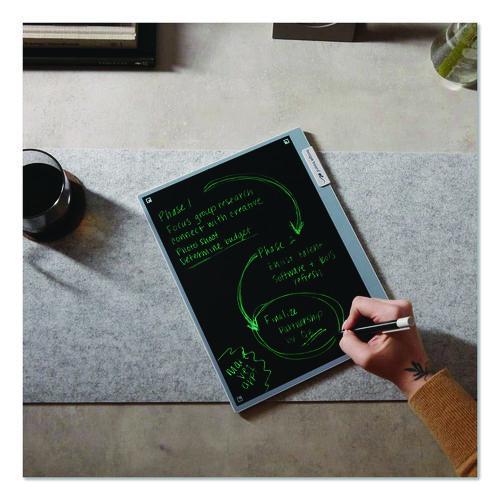 Phase 1
Focus group research
connect with creative
Photo shoot
Determine budget
Phase 2
software +
refresh
Finalize
Partnership
by Q2